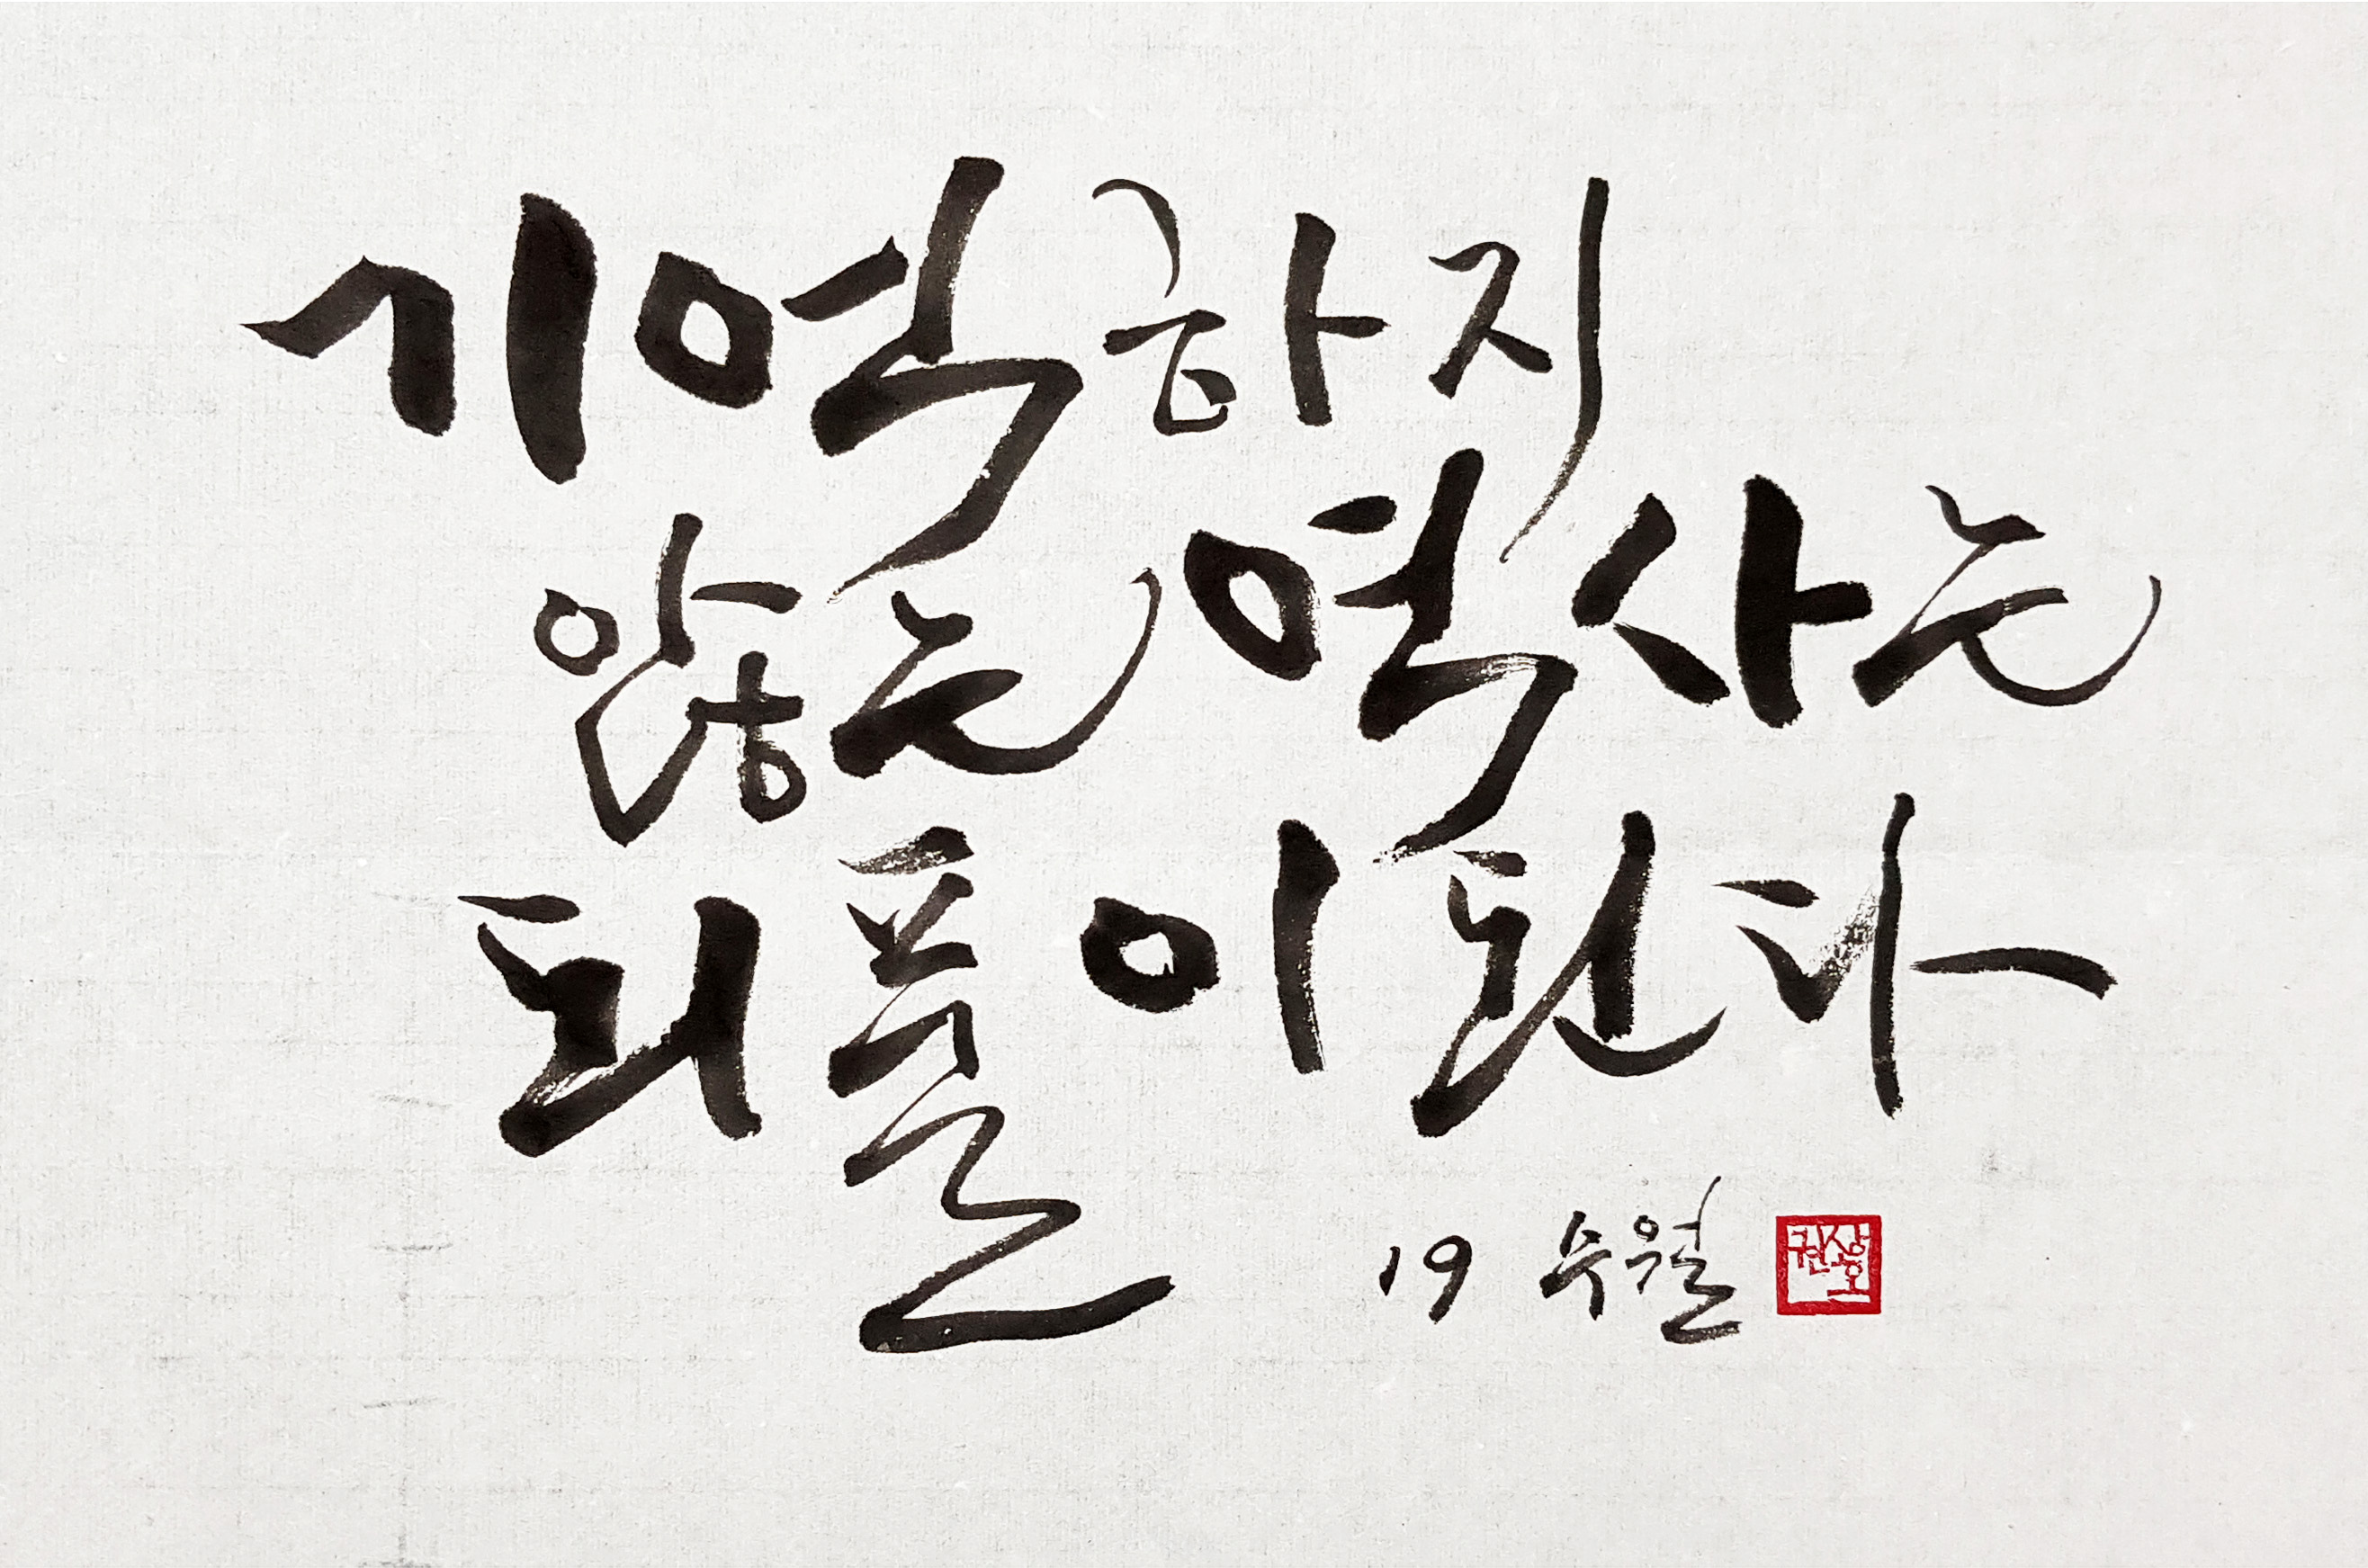 기억하지
않는 역사는
되풀이된다
19 수월
권상호